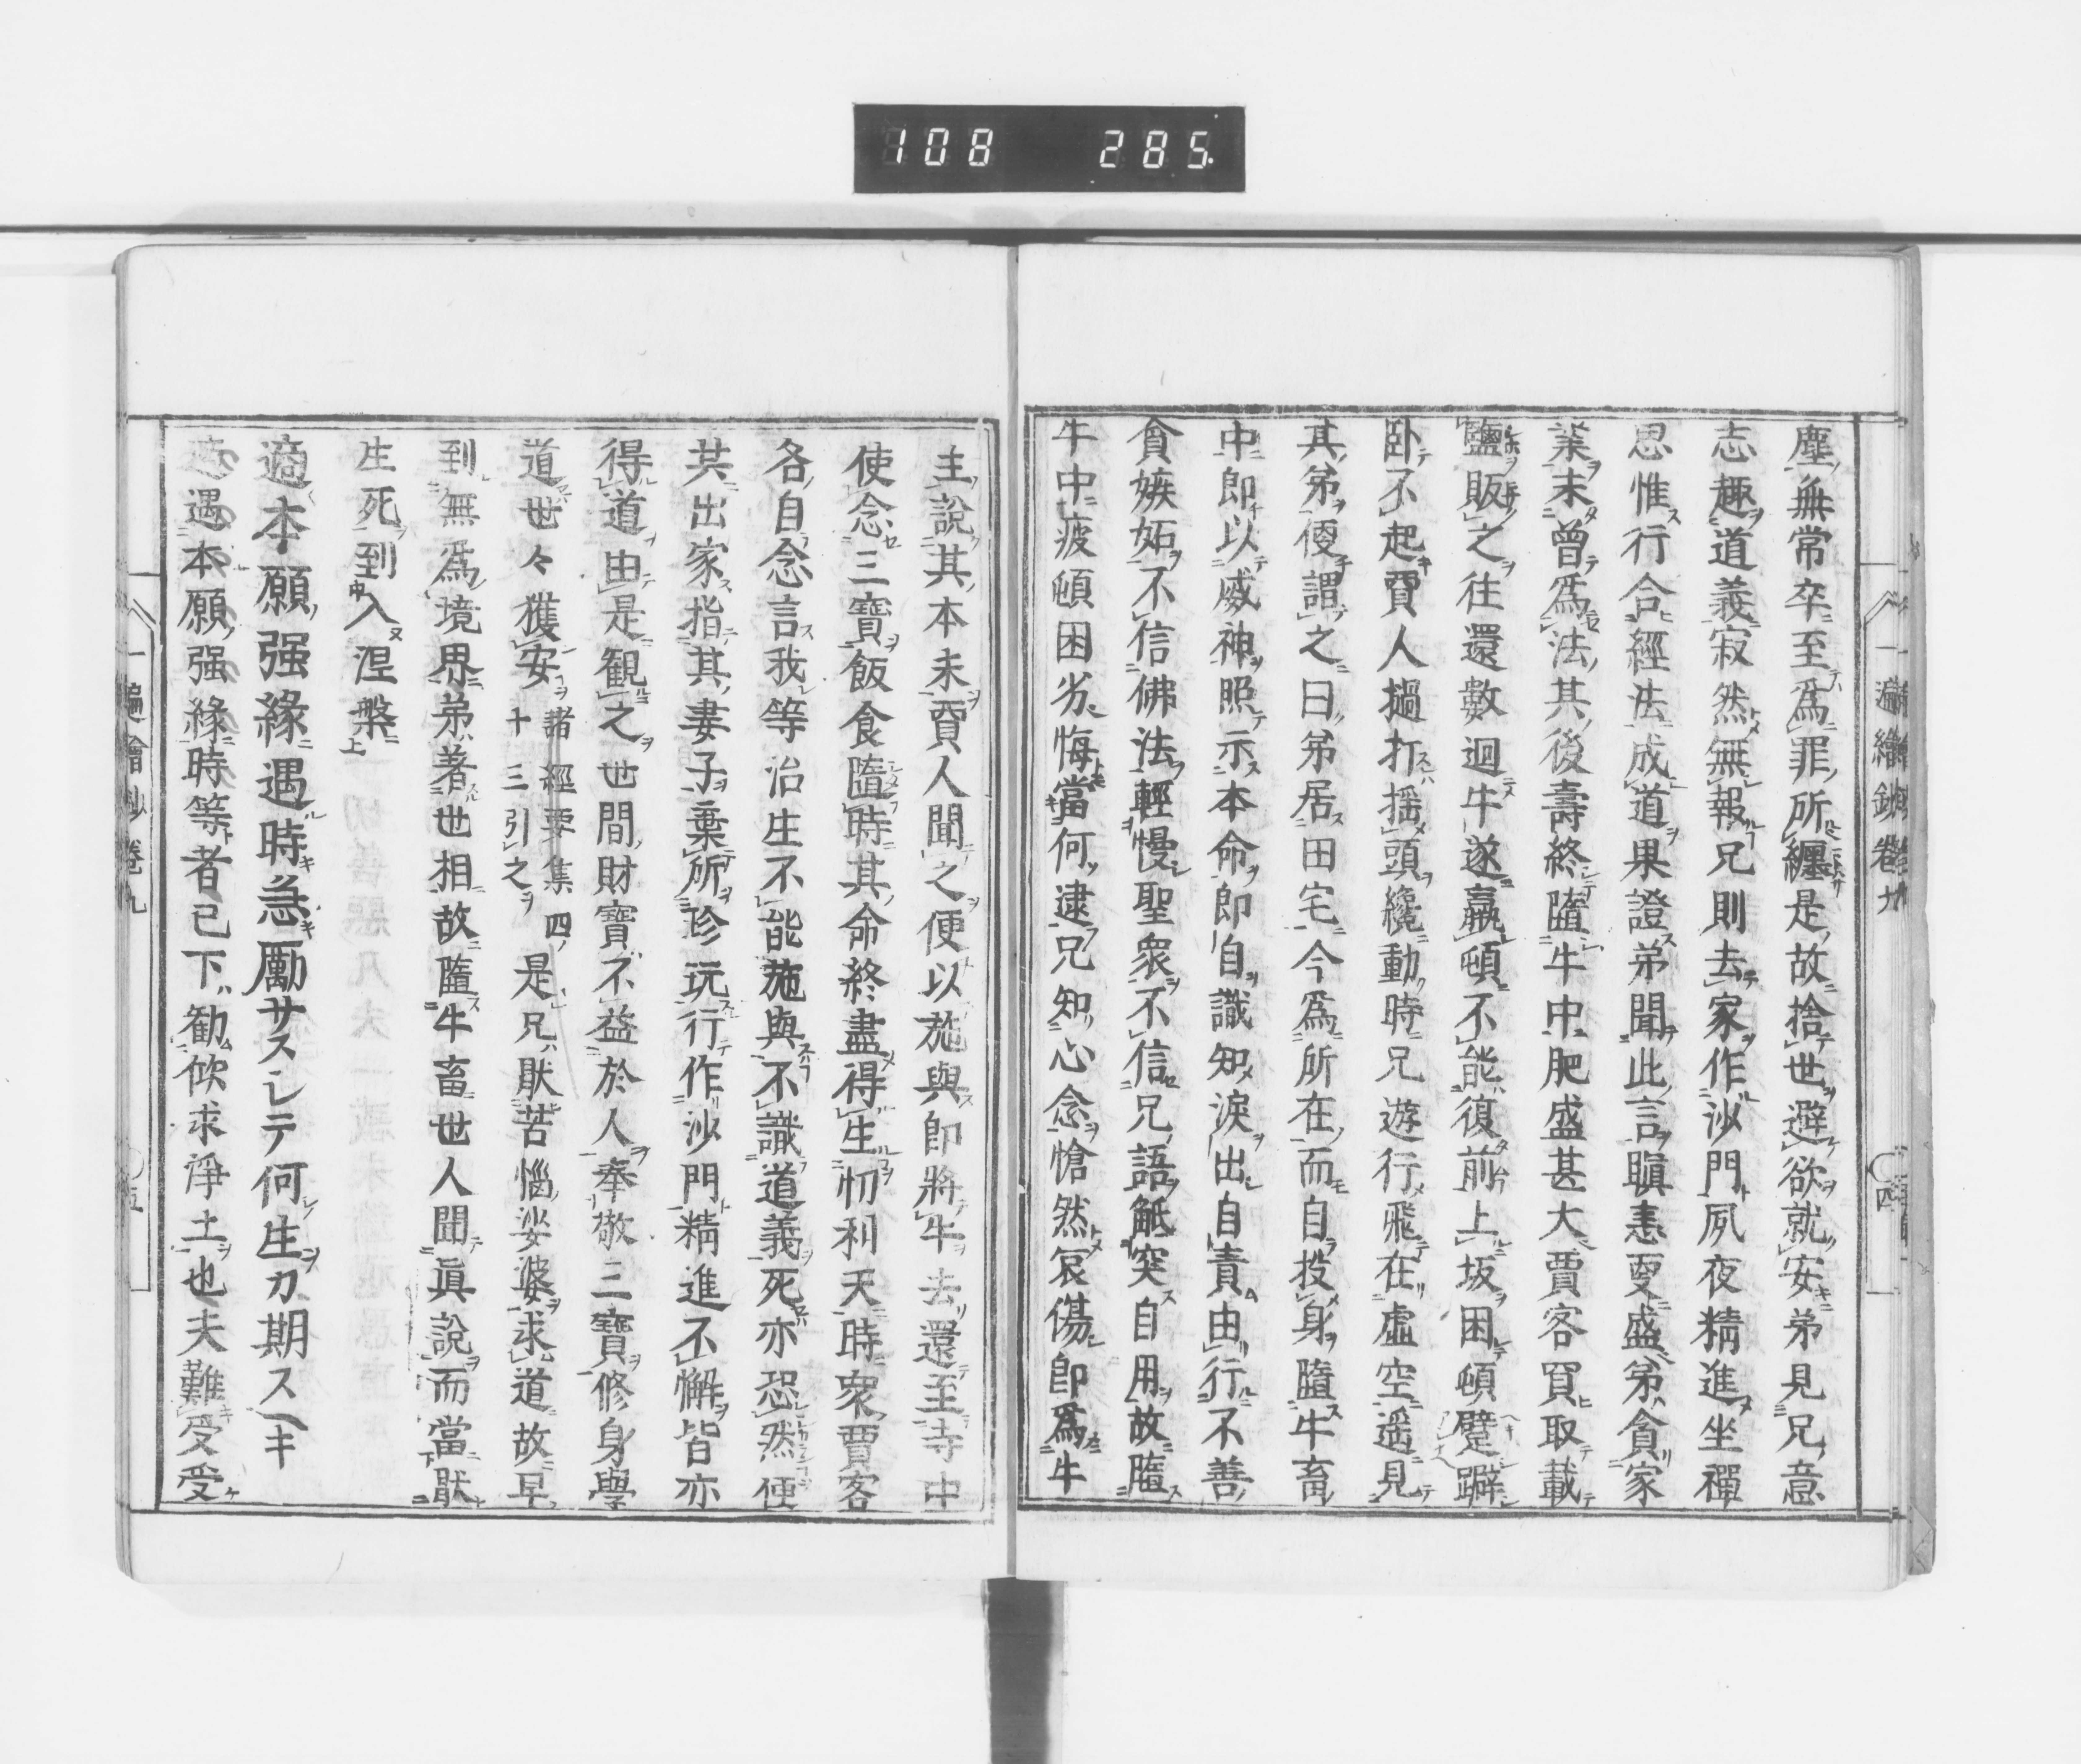 108 285
一遍繪鈔卷九 四
塵無常卒至爲罪所纏是故捨世避欲就安弟見兄意
志趣道義寂然無報兄則去家作沙門夙夜精進坐禪
思惟行合經法成道果證弟聞此言瞋恚更盛弟貪家
業未曾爲法其後壽終隨牛中肥盛甚大賈客買取載
鹽販之往還數迴牛遂羸頓不能復前上坂困頓躄躃
卧不起賈人撾打揺頭纔動時兄遊行飛在虛空遥見
其弟便謂之曰弟居田宅今爲所在而自投身隨牛畜
中即以威神照示本命即自識知淚出自責由行不善
貪嫉妬不信佛法輕慢聖衆不信兄語觝突自用故隨
牛中疲頓困劣悔當何逮兄知心念愴然哀傷即爲牛
主說其本末賈人聞之便以施與即將牛去還至寺中
使念三寶飯食隨時其命終盡得生忉利天時衆賈客
各自念言我等治生不能施與不識道義死亦恐然便
共出家指其妻子棄所珍玩行作沙門精進不懈皆亦
得道由是観之世間財寶不益於人奉敬三寶修身學
道世々獲安諸經要集四十三引之是兄猒苦惱娑婆求道故早
到無爲境界弟著世相故隨牛畜世人聞眞說而當猒
生死到入涅槃
適本願强緣遇時急勵サスレテ何生カ期スヘキ
適遇本願强緣時等者已下勧欣求淨土也夫難受受
一遍繪鈔卷九 五